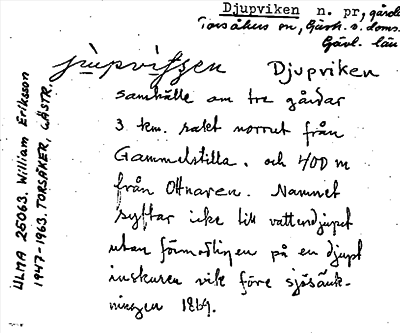 Djupviken n. pr, gårdar
Torsåkers sn, Gästr. s. doms.
Gävl. län
Djupviken
samhälle om tre gårdar
3 km. rakt norrut från
Gammelstilla. och 400 m
från Ottnaren. Namnet
syftar icke till vattendjupet
utan förmodligen på en djupt
inskuren vik före sjösänk-
ningen 1869.
ULMA 25063. William Eriksson
1947-1963. TORSÅKER, GÄSTR.